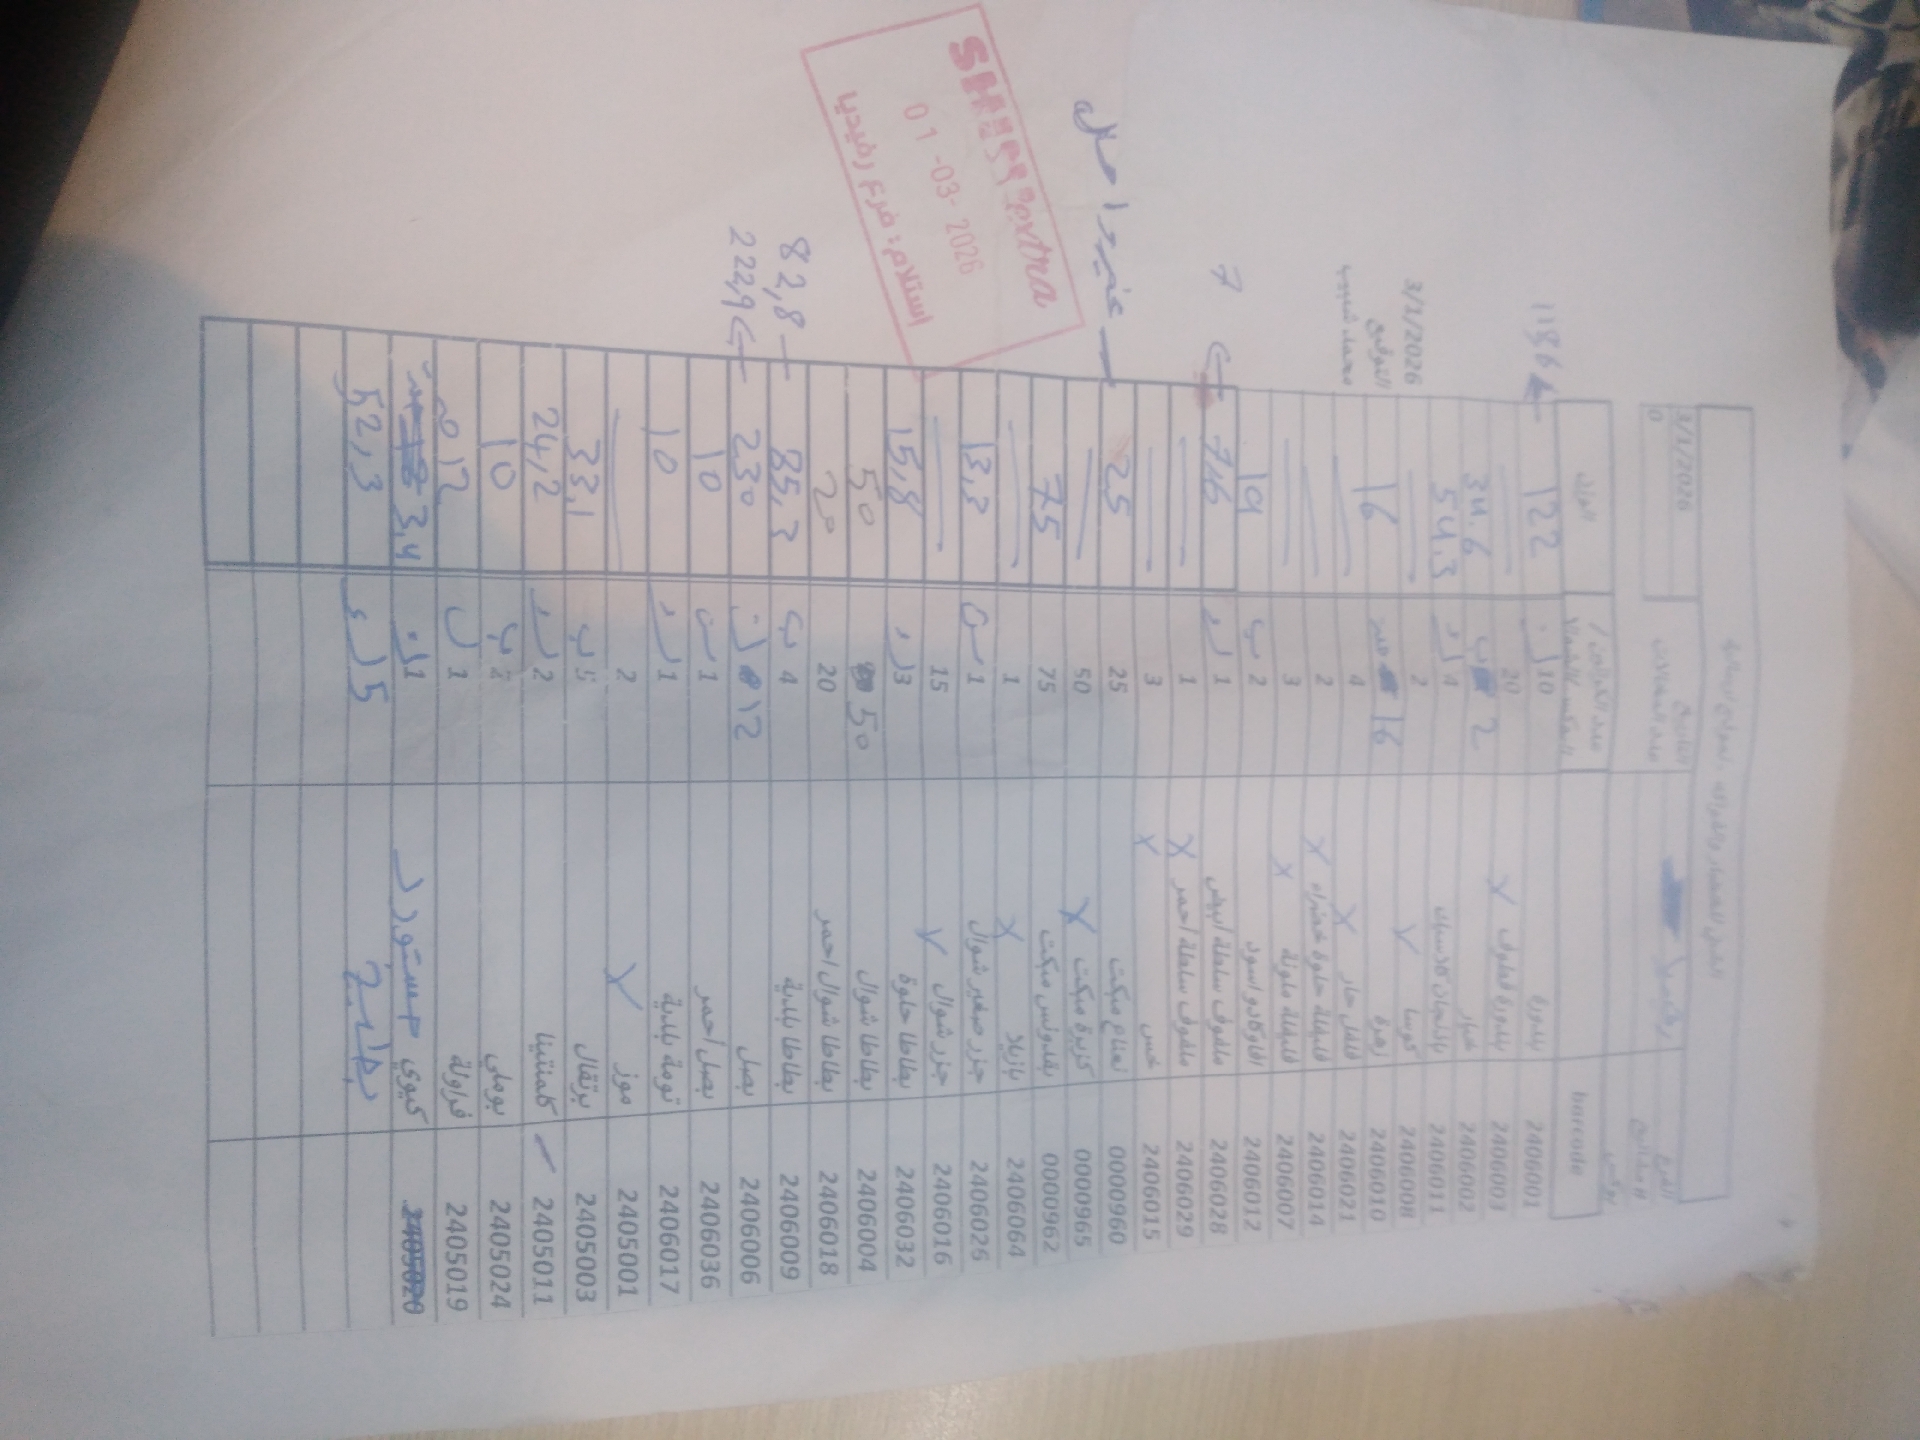 3/1/2026
0
التاريخ
الفرع
barcode
الوزن
2406001 بندورة 10 122
118,6
2406003 بندورة قطوف X 20
2406002 خيار 2 34.6
2406011 باذنجان كلاسيك 4 54.3
2406008 كوسا X 2
2406010 زهرة 16 16
2406021 فلفل حار X 4
2406014 فليفلة حلوة خضراء X 2
2406007 فليفلة ملونة X 3
2406012 افوكادو اسود 2 19
2406028 ملفوف سلطة ابيض 1 7.6
7
2406029 ملفوف سلطة احمر X 1
2406015 خس X 3
0000960 نعناع ميكت 25 25
0000965 كزبرة ميكت X 50
0000962 بقدونس ميكت 75 75
2406064 بازيلا X 1
2406026 جزر صغير شوال 1 13,3
2406016 جزر شوال X 15
2406032 بطاطا حلوة 3 15,8
2406004 بطاطا شوال 50 50
2406018 بطاطا شوال احمر 20 20
2406009 بطاطا بلدية 4 85,3
82,8
2406006 بصل 12 230
222,9
2406036 بصل أحمر 1 10
2406017 ثومة بلدية 1 10
2405001 موز X 2
2405003 برتقال 5 33,1
2405011 كلمنتينا 2 24,2
2405024 بوملي 2 10
2405019 فراولة 1 12
2405020 كيوي مستورد 1 3,4
5 52,3
3/1/2026
التوقيع
extra
01-03-2026
استلام: فرع رفيديا